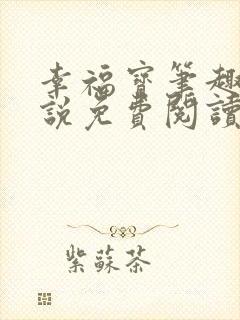 幸福寶筆趣
說免費閱讀
紫蘇茶